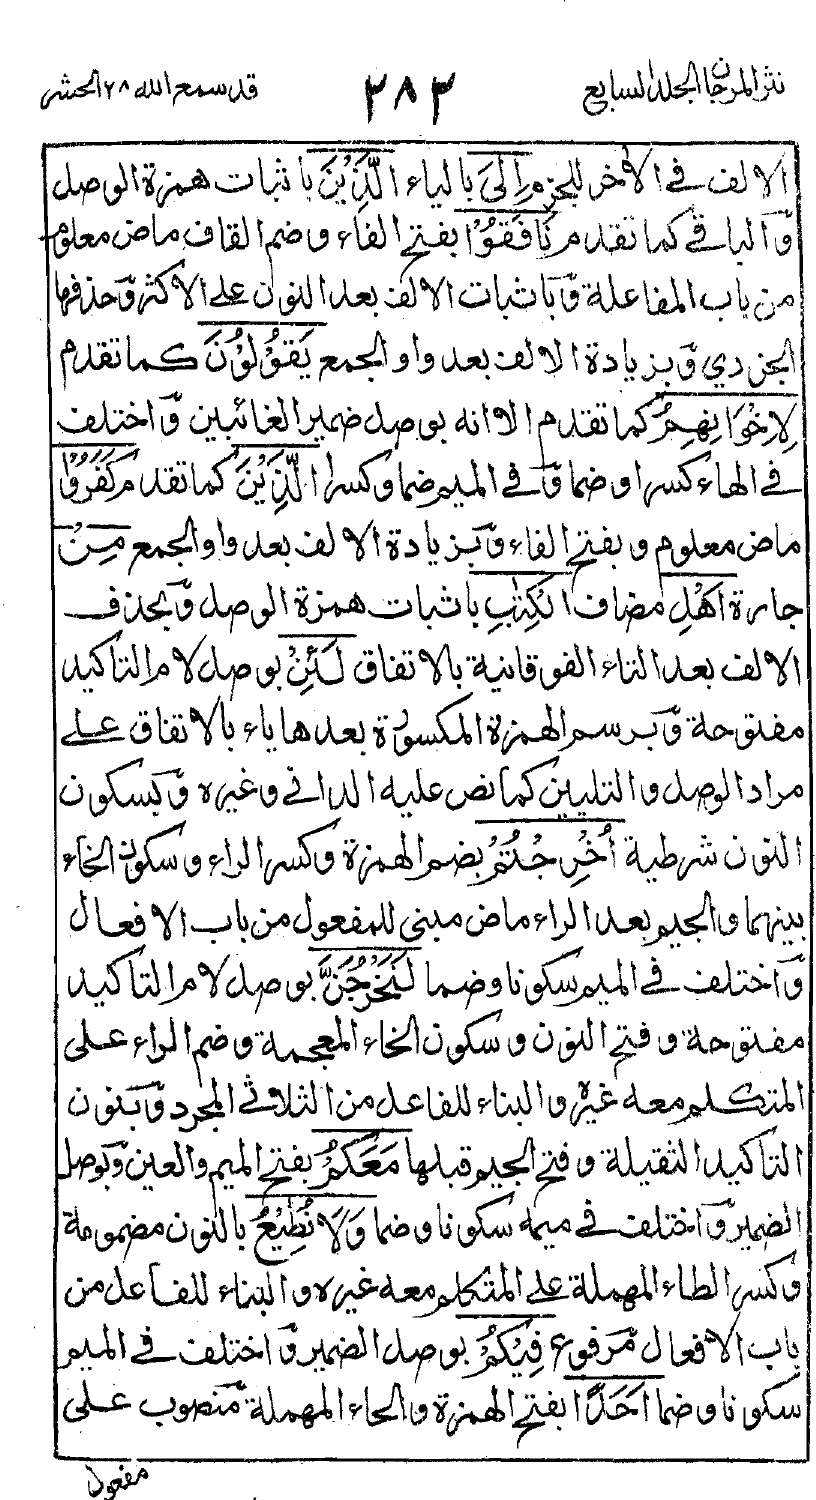 نثر المرجان الجلد السابع ٣٨٣ قد سمع الله ٢٨ الحشر
الالف فى الآخر للجزم اِلَى بالياء الَّذِيْنَ باثبات همزة الوصل
وَالباقى كما تقدم نَافَقُوْا بفتح الفاء وضم القاف ماض معلوم
من باب المفاعلة وَباثبات الالف بعد النون على الاكثر وَحذفها
الجزرى وَبزيادة الالف بعد واو الجمع يَقُوْلُوْنَ كما تقدم
لِاِخْوَانِهِمُ كما تقدم الا انه بوصل ضمير الغائبين وَاختلف
فى الهاء كسرا وضما وَفى الميم ضما وكسرا الَّذِيْنَ كما تقدم كَفَرُوْا
ماض معلوم وبفتح الفاء وَبزيادة الالف بعد واو الجمع مِنْ
جارة اَهْلِ مضاف الْكِتٰبِ باثبات همزة الوصل وَبحذف
الالف بعد التاء الفوقانية بالاتفاق لَئِنْ بوصل لام التاكيد
مفتوحة وَبرسم الهمزة المكسورة بعدها ياء بالاتفاق على
مراد الوصل والتليين كما نص عليه الدانى وغيره وَبسكون
النون شرطية اُخْرِجْتُمْ بضم الهمزة وكسر الراء وسكون الخاء
بينهما والجيم بعد الراء ماض مبنى للمفعول من باب الافعال
وَاختلف فى الميم سكونا وضما لَنَخْرُجَنَّ بوصل لام التاكيد
مفتوحة وفتح النون وسكون الخاء المعجمة وضم الراء على
المتكلم معه غيره والبناء للفاعل من الثلاثى المجرد وَبنون
التاكيد الثقيلة وفتح الجيم قبلها مَعَكُمْ بفتح الميم والعين وَبوصل
الضمير وَاختلف فى ميمه سكونا وضما وَلَا نُطِيْعُ بالنون مضمومة
وكسر الطاء المهملة على المتكلم معه غيره والبناء للفاعل من
باب الافعال مَرفوع فِيْكُمْ بوصل الضمير وَاختلف فى الميم
سكونا وضما اَحَدًا بفتح الهمزة والحاء المهملة مَنصوب على
مفعول